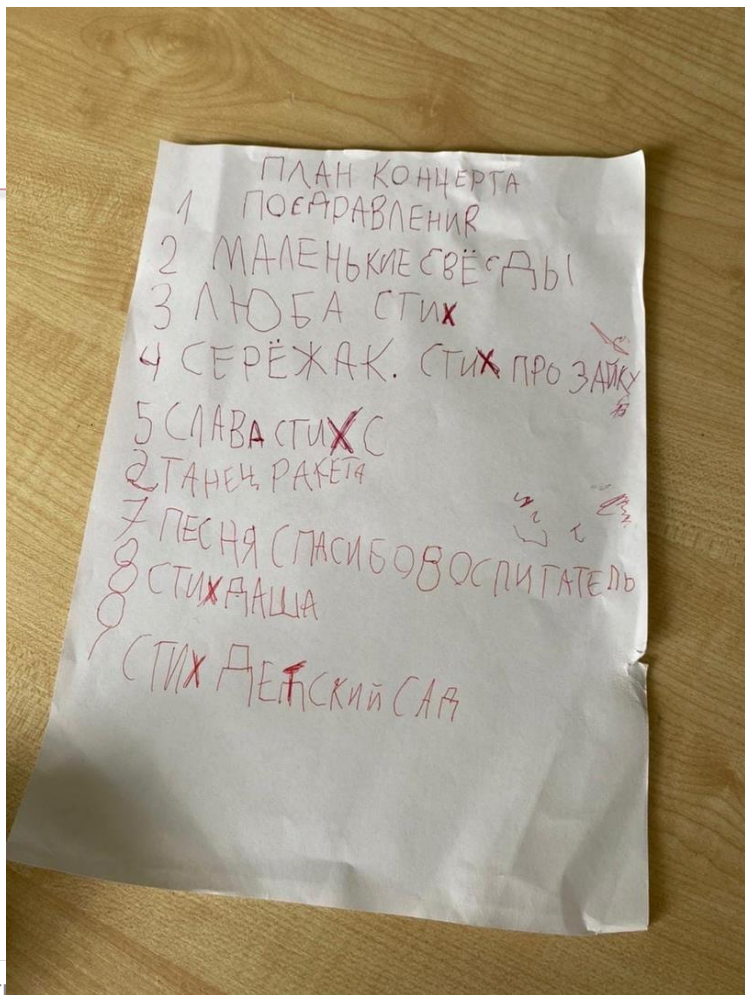 ПЛАН КОНЦЕРТА
1 ПОЕДРАВЛЕНИЯ
2 МАЛЕНЬКИЕ СВЁСДЫ
3 ЛЮБА СТИХ
4 СЕРЁЖАК. СТИХ ПРО ЗАЙКУ
5 СЛАВА СТИХ С
2 ТАНЕЦ РАКЕТА
7 ПЕСНЯ СПАСИБО ВОСПИТАТЕЛЬ
8 СТИХ ДАША
9
СТИХ ДЕТСКИЙ САД